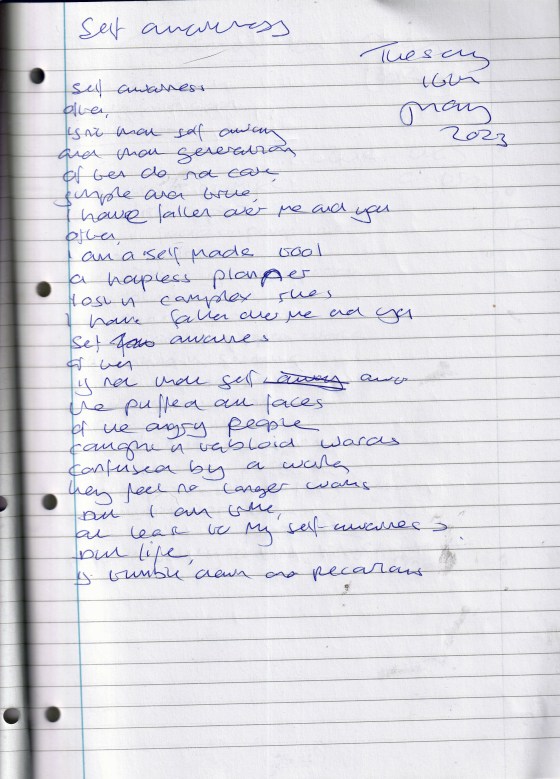 Self awareness
Tuesday
16th
May
2023
Self awareness
often,
isn't that self away
and that generation
often do not care,
simple and true,
I have fallen over me and you
often,
I am a self made tool
a hapless planner
lost in complex rules
I have fallen over me and you
Self awareness
often
is not that self
the puffed out faces
of the angry people
caught in tabloid words
confused by a world
they feel no longer works
but I am true,
at least to my self-awareness
but life,
is tumble down and precarious